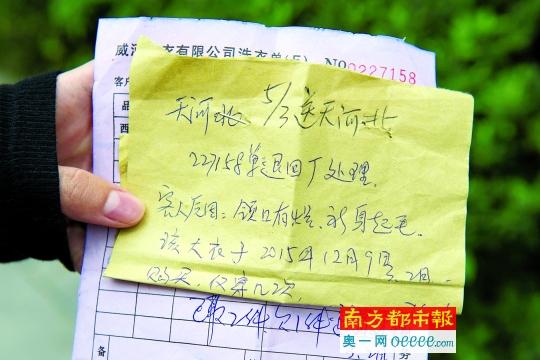 衣有限公司洗衣单
No 0227158
客户
品
西
天河北 5/3送天河北
227158单退回厂处理.
客人反因:领口有烂,衫身起毛.
该大衣于2015年12月9号
购买,仅穿几次,
备
南方都市報
奥一网 oeeee.com